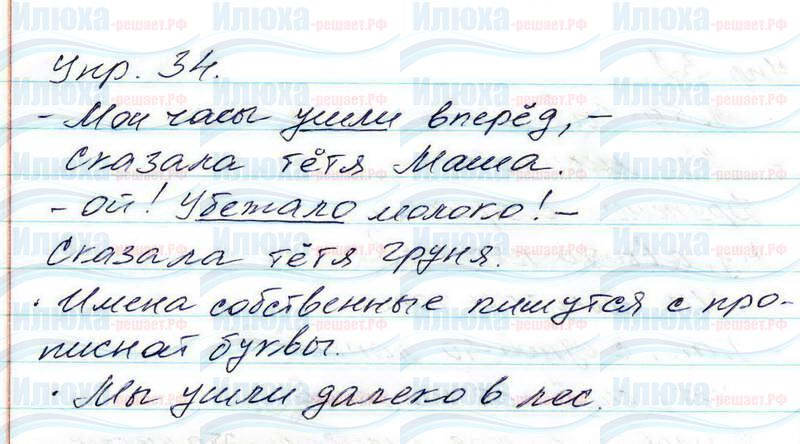 Упр. 34.
- Мои часы ушли вперёд, -
сказала тётя Маша.
- Ой! Убежало молоко! -
сказала тётя Груня.
· Имена собственные пишутся с про-
писной буквы.
· Мы ушли далеко в лес.